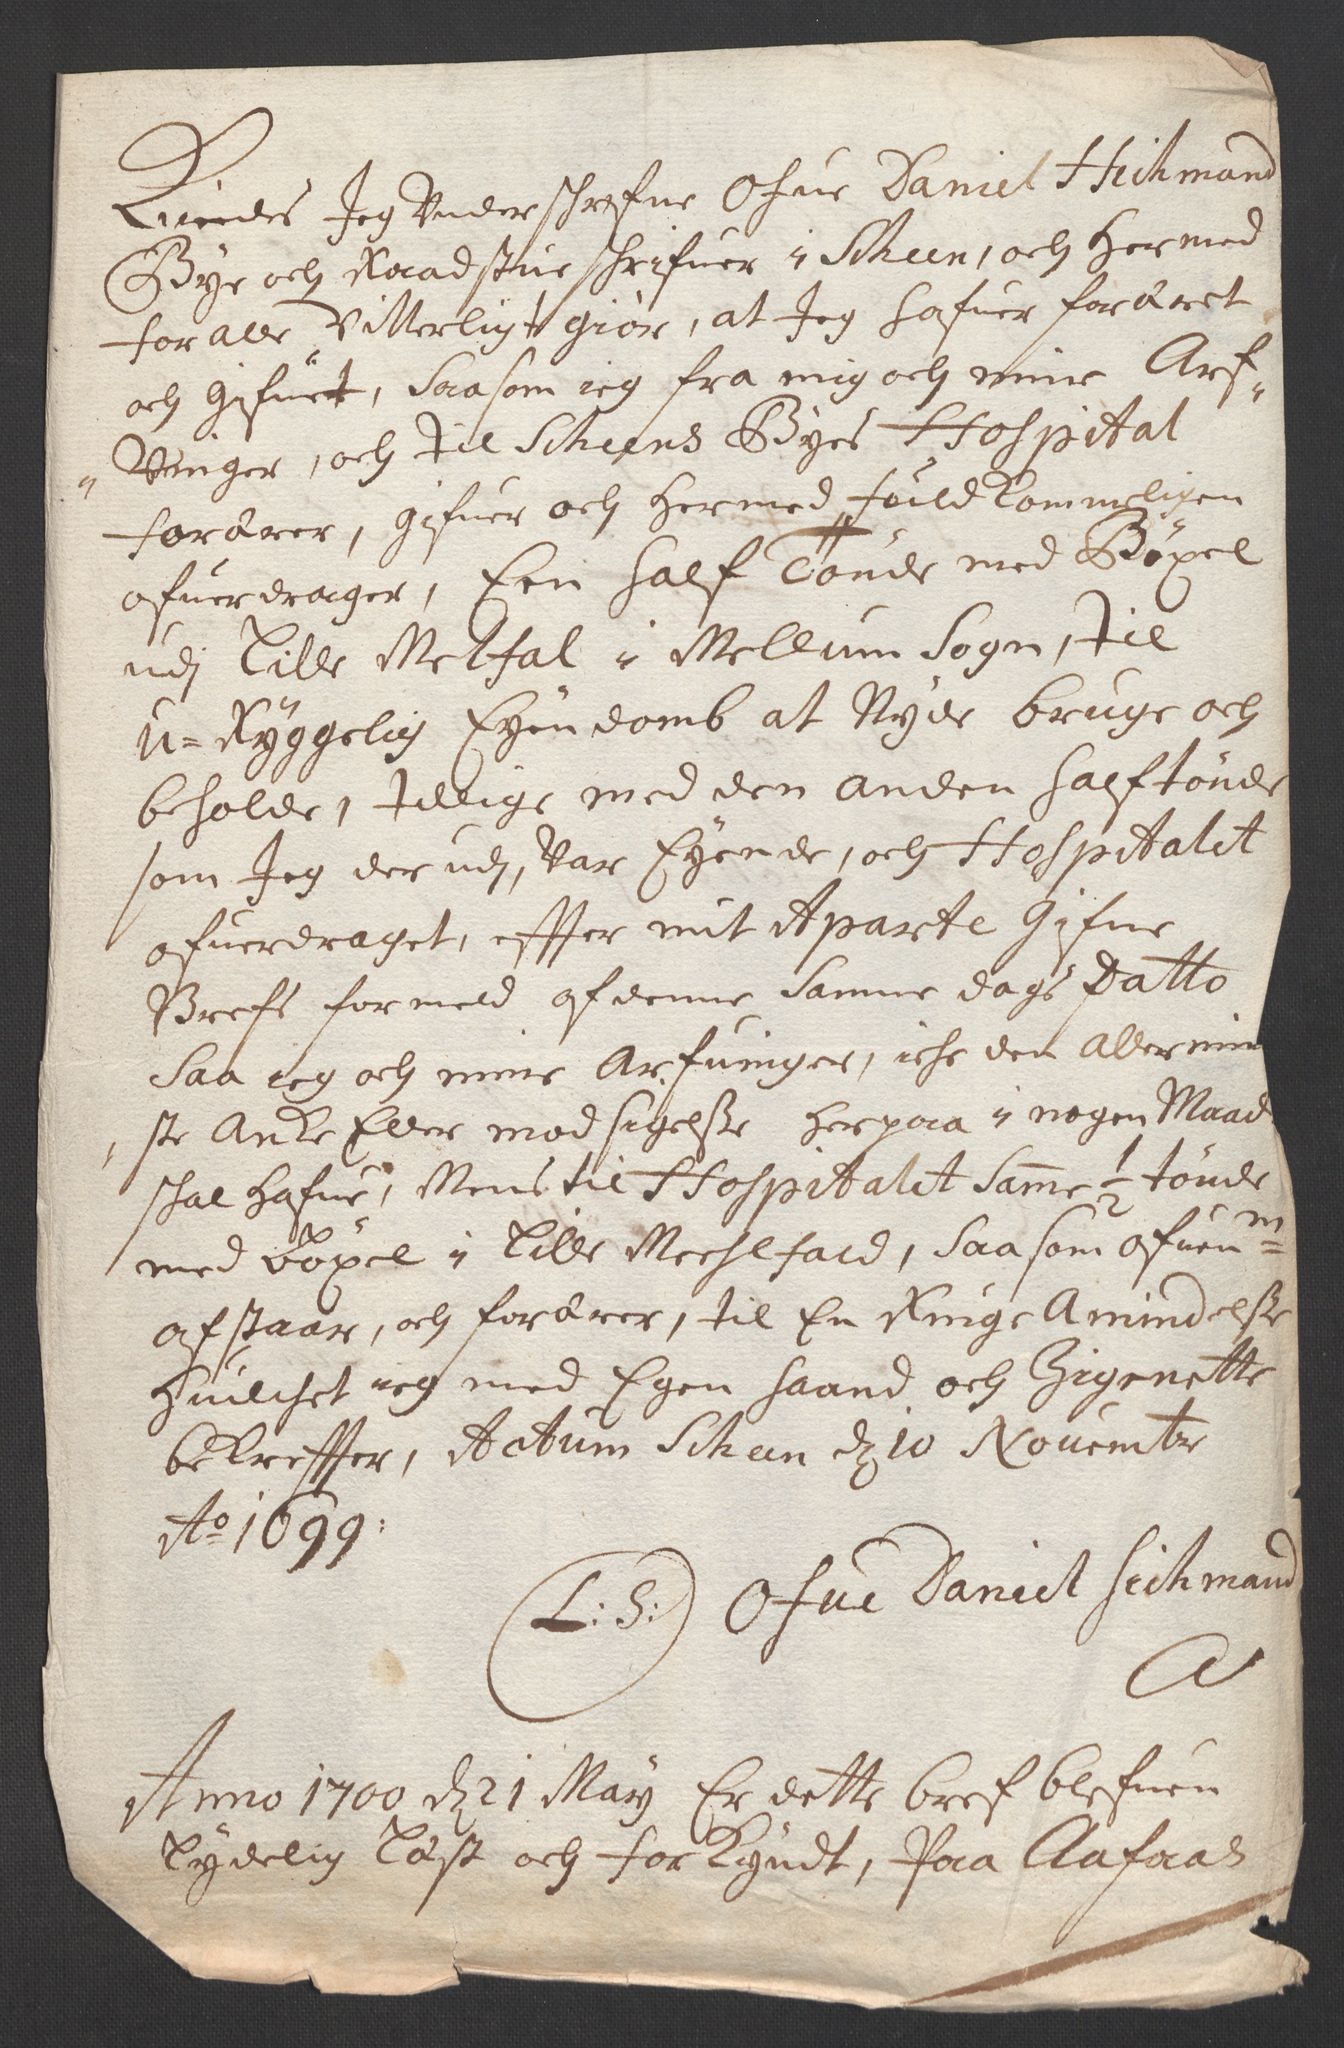 Kiendes Jeg Underschrefne Ofue Daniel Heihmand
Bye och Raadstue schrifuer i Scheen, och Hermed
for alle Vitterligt giør, at Jeg hafuer foräret
och gifuet, Saasom ieg fra mig och mine Arf-
Vinger, och til Scheens Byes Hospital
forärer, gifuer och Hermed fuldkommeligen
ofuerdrager, Een half Tønde med Böxel
udj Lille Melfal i Mellum Sogn, til
U-Ryggelig Eyendomb at Nyde bruge och
beholde, tillige med den anden half tönde
som Jeg der udj, var Eyende, och Hospitalet
ofuerdraget, effter mit Aparte gifne
Brefs formeld af denne Samme dags Datto
Saa ieg och mine Arfuinger, iche den allermin
ste Anke Eller modsigelsze herpaa i nogen Maade
schal Hafue, Mens til Hospitalet Samme ½ tönde
med Böxel i Lille Meehlfald, Saasom ofuen m=
afstaar, och forärer, til En Ringe Amindelsze
Huilchet ieg med Egen haand och Zignette
bekreffter, Actum Scheen dz 10 Novembr
Ao 1699:
L: S: Ofue Daniel Heihmand
Anno 1700 dz 21 May Er dette bref blefuen
Lydelig Läst och forkyndt, Paa Aafoas